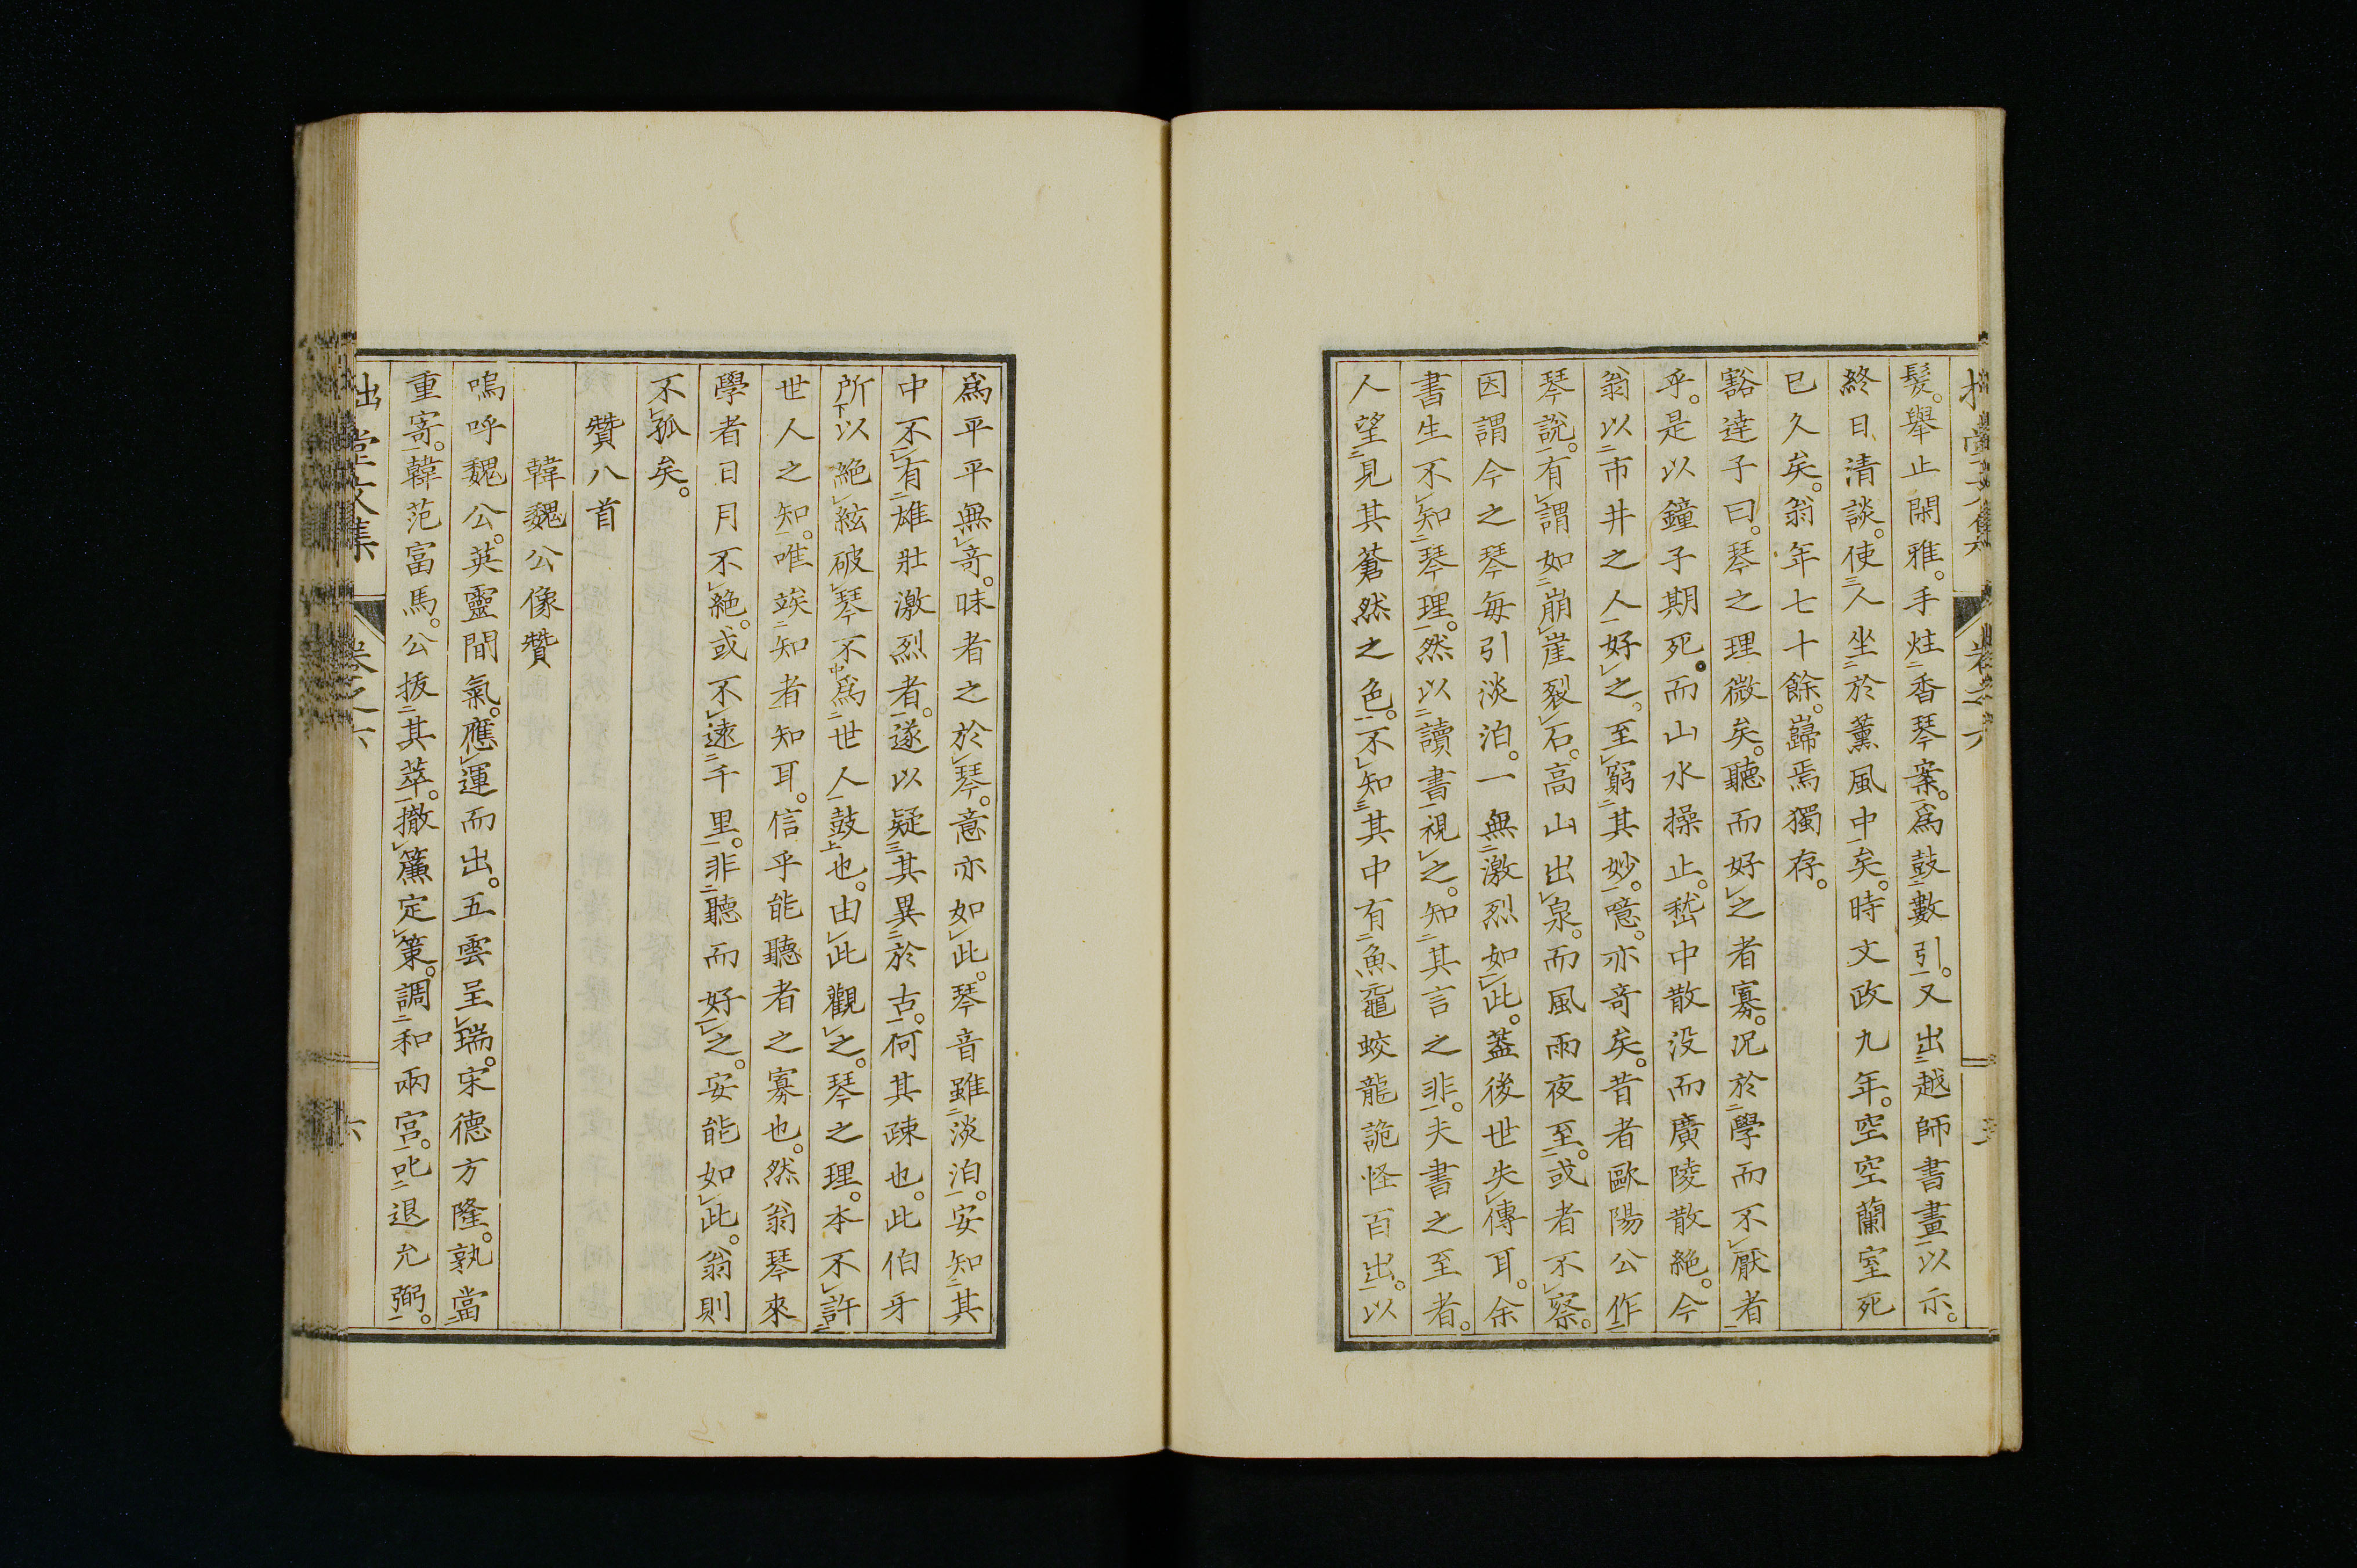 髮。舉止閑雅。手炷香琴案。爲鼓數引。又出越師書畫以示。
終日清談。使人坐於薰風中矣。時文政九年。空空蘭室死
已久矣。翁年七十餘。巋焉獨存。
豁達子曰。琴之理微矣。聽而好之者寡。況於學而不厭者
乎。是以鐘子期死。而山水操止。嵇中散没而廣陵散絶。今
翁以市井之人好之。至窮其妙。噫。亦奇矣。昔者歐陽公作
琴說。有謂如崩崖裂石。高山出泉。而風雨夜至。或者不察。
因謂今之琴每引淡泊。一無激烈如此。蓋後世失傳耳。余
書生不知琴理。然以讀書視之。知其言之非。夫書之至者。
人望見其蒼然之色。不知其中有魚黿蛟龍詭怪百出。以
爲平平無奇。昧者之於琴。意亦如此。琴音雖淡泊。安知其
中不有雄壯激烈者。遂以疑其異於古。何其疎也。此伯牙
所以絶絃破琴不爲世人鼓也。由此觀之。琴之理。本不許
世人之知。唯竢知者知耳。信乎能聽者之寡也。然翁琴來
學者日月不絶。或不遠千里。非聽而好之。安能如此。翁則
不孤矣。
贊八首
韓魏公像贊
嗚呼魏公。英靈間氣。應運而出。五雲呈瑞。宋德方隆。孰當
重寄。韓范富馬。公拔其萃。撤簾定策。調和兩宮。叱退允弼。
堂文集 卷之六 六